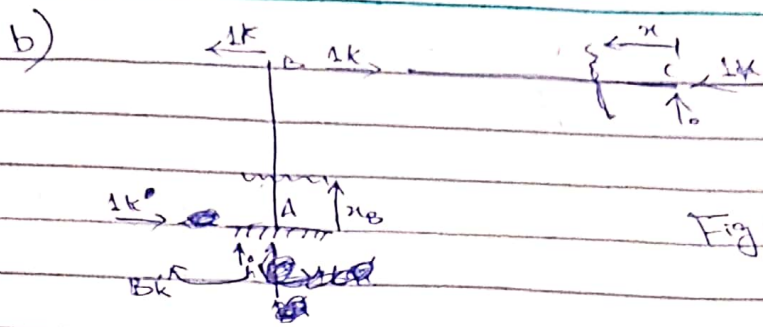 b)
1k 1k x
C 1k
0
1k A xB
Fig
Bk